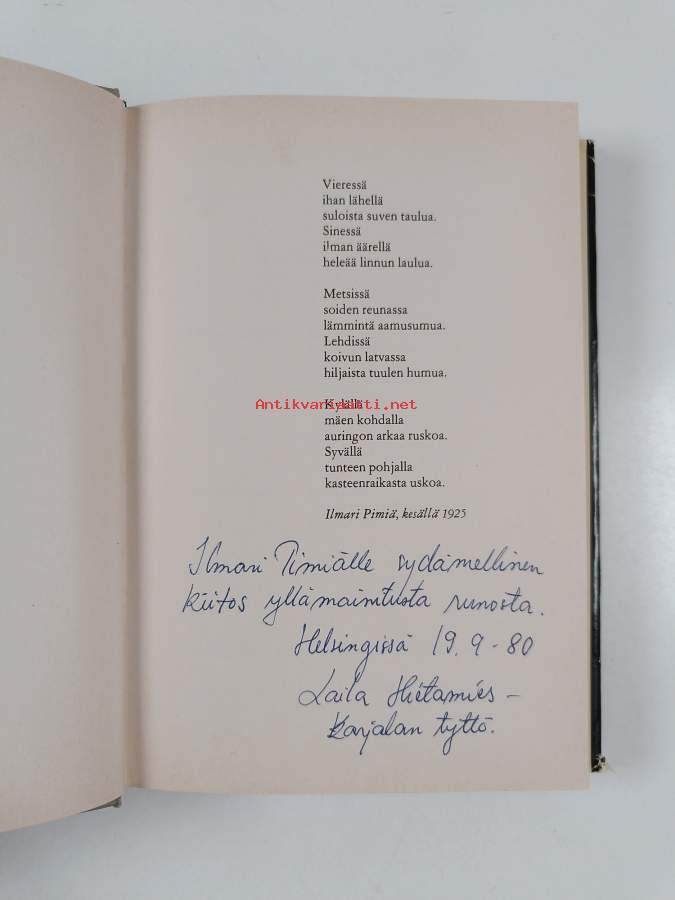 Vieressä
ihan lähellä
suloista suven taulua.
Sinessä
ilman äärellä
heleää linnun laulua.
Metsissä
soiden reunassa
lämmintä aamusumua.
Lehdissä
koivun latvassa
hiljaista tuulen humua.
Kylällä
Antikvariaatti.net
mäen kohdalla
auringon arkaa ruskoa.
Syvällä
tunteen pohjalla
kasteenraikasta uskoa.
Ilmari Pimiä, kesällä 1925
Ilmari Pimiälle sydämellinen
kiitos yllämainitusta runosta.
Helsingissä 19.9-80
Laila Hietamies –
Karjalan tyttö.